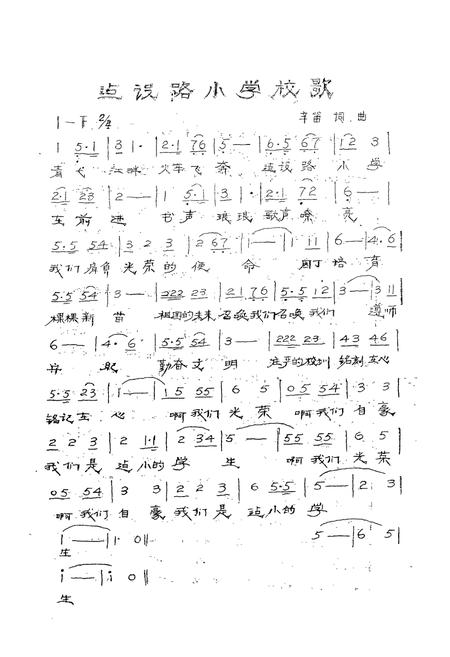 建设路小学校歌
1=F 2/4
辛笛 词 曲
1 5·1 | 3 1· | 2·1 76 | 5 — | 6·5 67 | 12 3 |
火车飞奔 建设路 小学
2·1 23 | 2 — | 1 5·1 | 3 — | 2·1 72 | 6 — |
在前进 书声 琅琅 歌声嘹亮
5·5 54 | 3 2 3 | 2 67 | 1 — | 1 11 | 6 — | 4·6 |
我们肩负光荣的使命 园丁培育
5·5 54 | 3 — | 222 23 | 21 76 | 5·5 12 | 3 — | 3 11 |
棵棵新苗 祖国的未来召唤我们召唤我们 遵师
6 — | 4·6 | 5·5 54 | 3 — | 222 23 | 43 46 |
勤奋文明 庄严的校训 铭刻在心
5·5 23 | 1 — | 15 55 | 6 5 | 05 54 | 3 3 |
铭记在心 啊我们光荣 啊我们自豪
2 2 3 | 2 1·1 | 2 34 | 5 — | 55 55 | 6 5 |
我们是建小的学生 啊我们光荣
05 54 | 3 3 | 2 2 3 | 6 5·5 | 5 — | 2 3 |
啊我们自豪我们是建小的学
1 — | 1· 0 ‖ 5 — | 6 5 |
生
i — | i 0 ‖
生